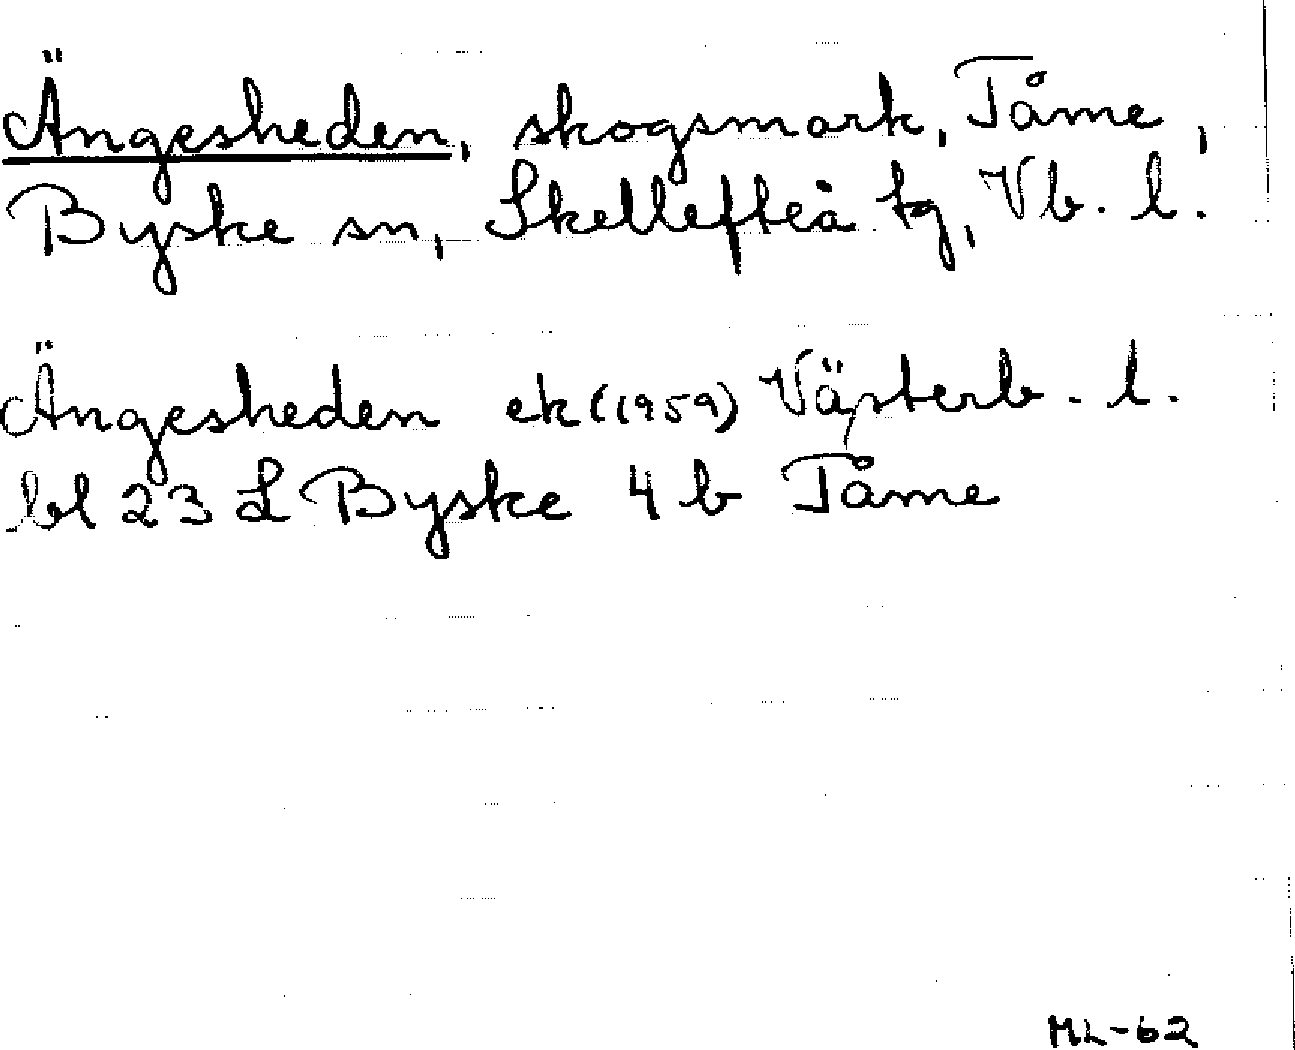 Ängesheden, skogsmark, Tåme,
Byske sn, Skellefteå tg, Vb. l.
Ängesheden ek (1959) Västerb. l.
bl 23 L Byske 4 b Tåme
ML-62